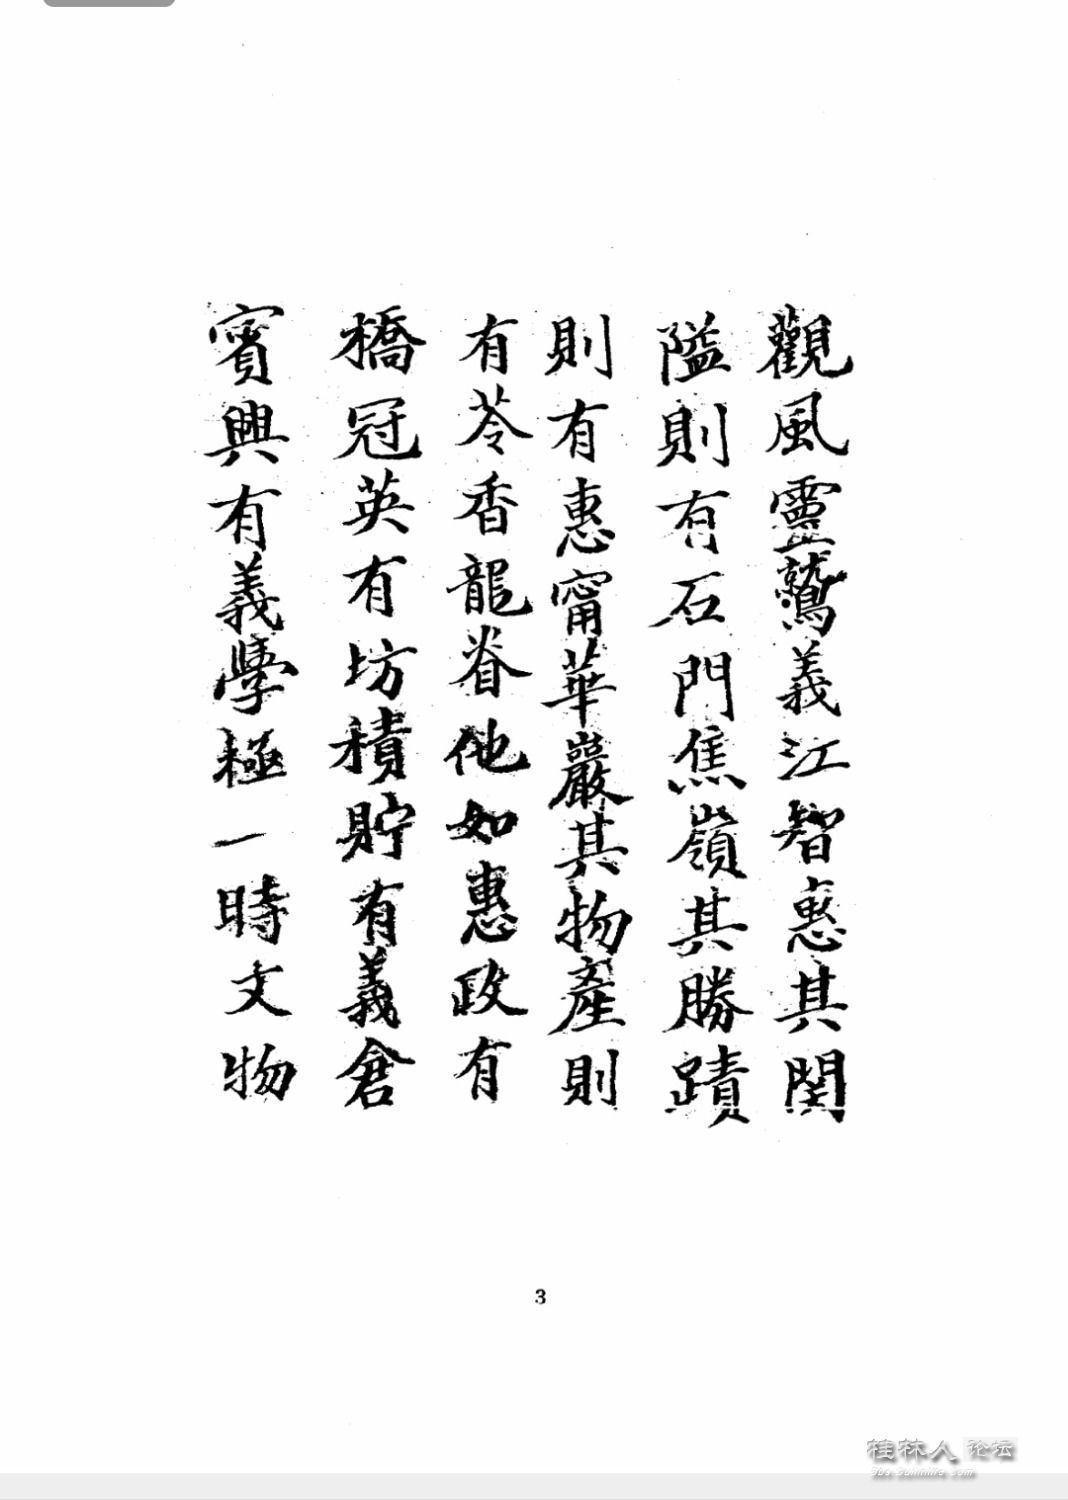 觀風靈鷲義江智惠其關
隘則有石門焦嶺其勝蹟
則有惠甯華巖其物產則
有苓香龍眷他如惠政有
橋冠英有坊積貯有義倉
賓興有義學極一時文物
3
桂林人论坛